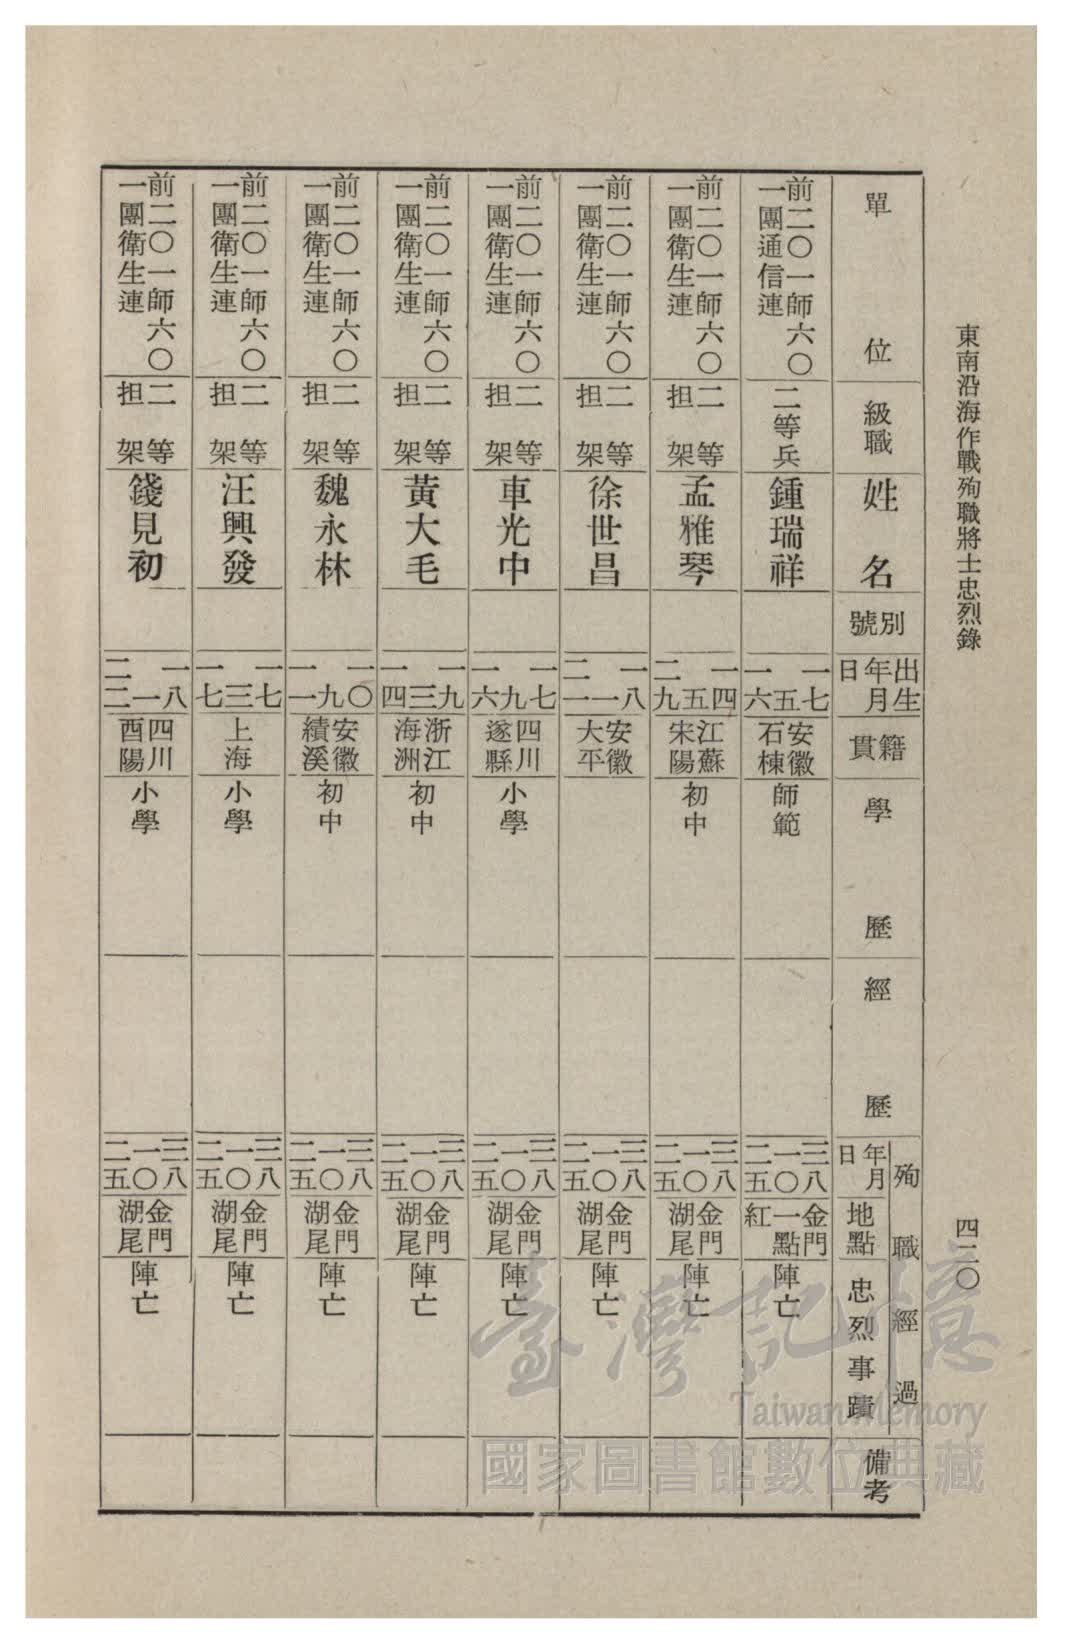 東南沿海作戰殉職將士忠烈錄
四二〇
單位
級職
姓名
別號
出生年月日
籍貫
學歷
經歷
殉職經過
年月日
地點
忠烈事蹟
備考
前二〇一師六〇
一團通信連
二等兵
鍾瑞祥
一七
五
一六
安徽
石棟
師範
三八
一〇
二五
金門
一點
紅
陣亡
前二〇一師六〇
一團衛生連
二等
担架
孟雅琴
一四
五
二九
江蘇
宋陽
初中
三八
一〇
二五
金門
湖尾
陣亡
前二〇一師六〇
一團衛生連
二等
担架
徐世昌
一八
一
二一
安徽
大平
三八
一〇
二五
金門
湖尾
陣亡
前二〇一師六〇
一團衛生連
二等
担架
車光中
一七
九
一六
四川
遂縣
小學
三八
一〇
二五
金門
湖尾
陣亡
前二〇一師六〇
一團衛生連
二等
担架
黃大毛
一九
三
一四
浙江
海洲
初中
三八
一〇
二五
金門
湖尾
陣亡
前二〇一師六〇
一團衛生連
二等
担架
魏永林
一〇
九
一一
安徽
績溪
初中
三八
一〇
二五
金門
湖尾
陣亡
前二〇一師六〇
一團衛生連
二等
担架
汪興發
一七
三
一七
上海
小學
三八
一〇
二五
金門
湖尾
陣亡
前二〇一師六〇
一團衛生連
二等
担架
錢見初
一八
一
二二
四川
酉陽
小學
三八
一〇
二五
金門
湖尾
陣亡
臺灣記憶
Taiwan Memory
國家圖書館數位典藏